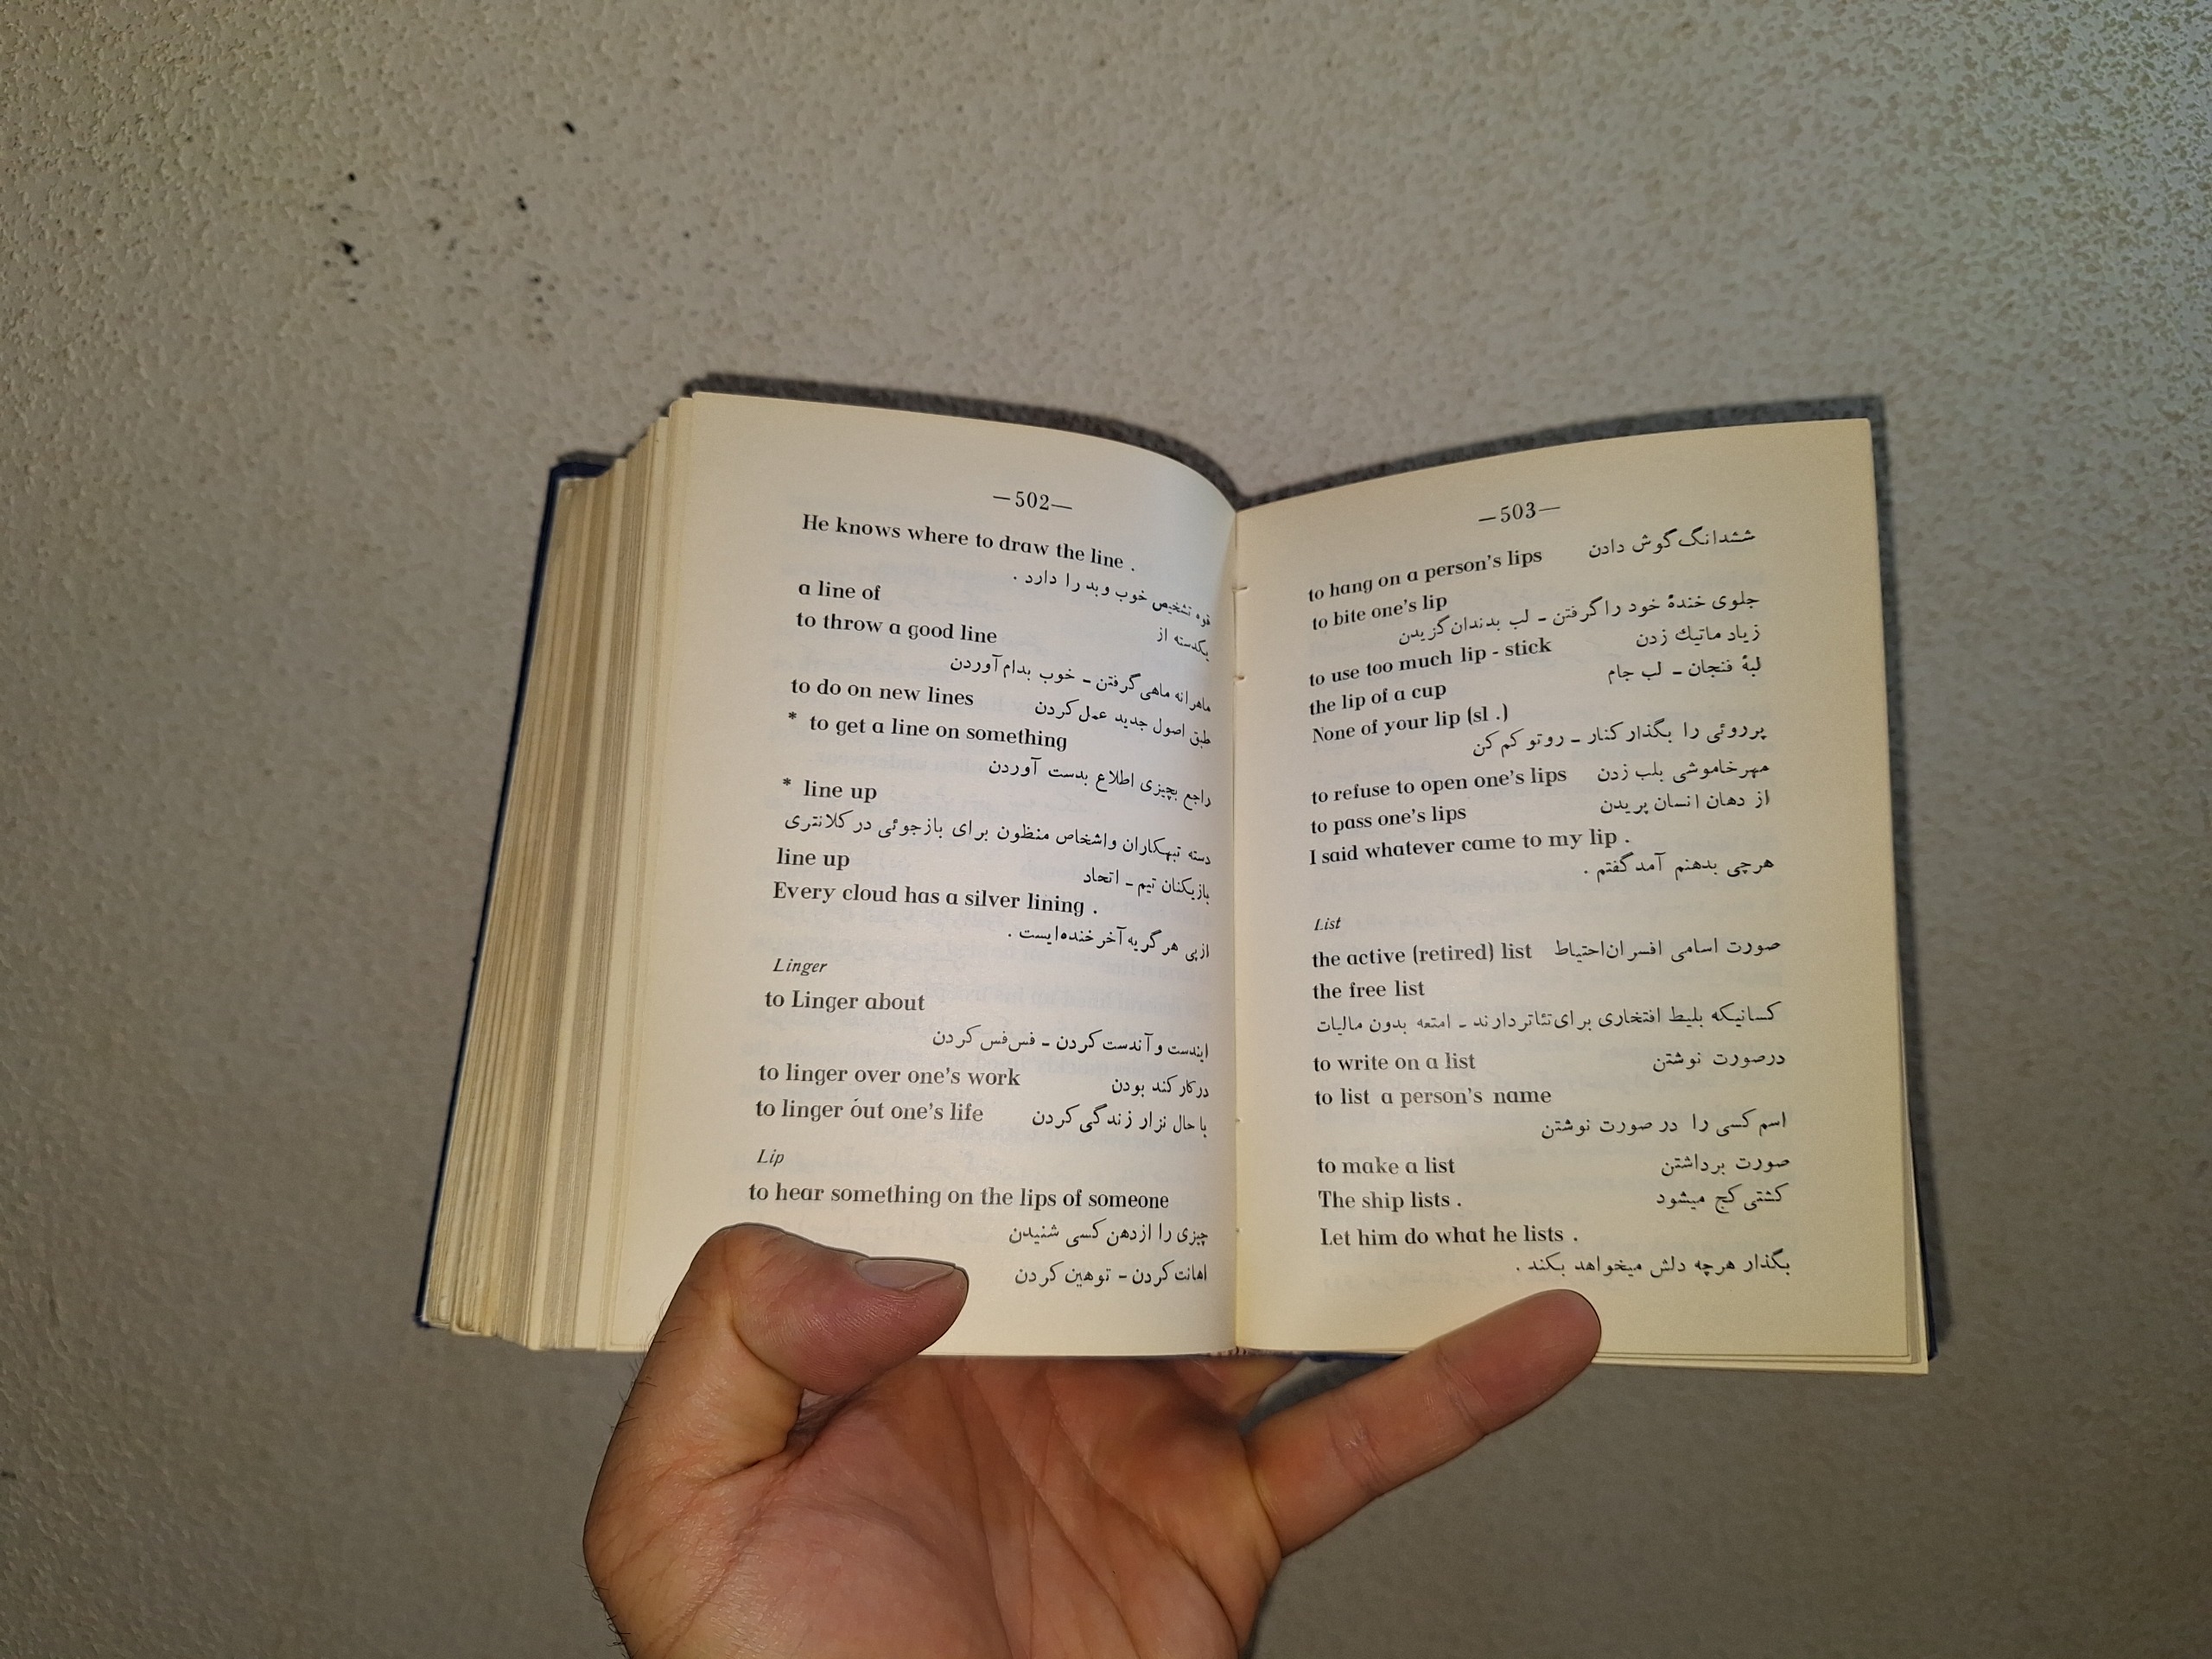 —502—
He knows where to draw the line .
قوه تشخیص خوب وبد را دارد .
a line of یکدسته از
to throw a good line
ماهرانه ماهی گرفتن ـ خوب بدام آوردن
to do on new lines طبق اصول جدید عمل کردن
* to get a line on something
راجع بچیزی اطلاع بدست آوردن
* line up
دسته تبهکاران واشخاص منظون برای بازجوئی در کلانتری
line up بازیکنان تیم ـ اتحاد
Every cloud has a silver lining .
ازپی هر گریه آخر خنده‌ایست .
Linger
to Linger about
ایندست و آندست کردن ـ فس‌فس کردن
to linger over one's work درکار کند بودن
to linger óut one's life با حال نزار زندگی کردن
Lip
to hear something on the lips of someone
چیزی را ازدهن کسی شنیدن
اهانت کردن ـ توهین کردن
—503—
to hang on a person's lips ششدانگ گوش دادن
to bite one's lip
جلوی خندهٔ خود را گرفتن ـ لب بدندان گزیدن
to use too much lip - stick زیاد ماتیك زدن
the lip of a cup لبهٔ فنجان ـ لب جام
None of your lip (sl .)
پرروئی را بگذار کنار ـ روتو کم کن
to refuse to open one's lips مهرخاموشی بلب زدن
to pass one's lips از دهان انسان پریدن
I said whatever came to my lip .
هرچی بدهنم آمد گفتم .
List
the active (retired) list صورت اسامی افسران احتیاط
the free list
کسانیکه بلیط افتخاری برای تئاتر دارند ـ امتعه بدون مالیات
to write on a list درصورت نوشتن
to list a person's name
اسم کسی را در صورت نوشتن
to make a list صورت برداشتن
The ship lists . کشتی کج میشود
Let him do what he lists .
بگذار هرچه دلش میخواهد بکند .